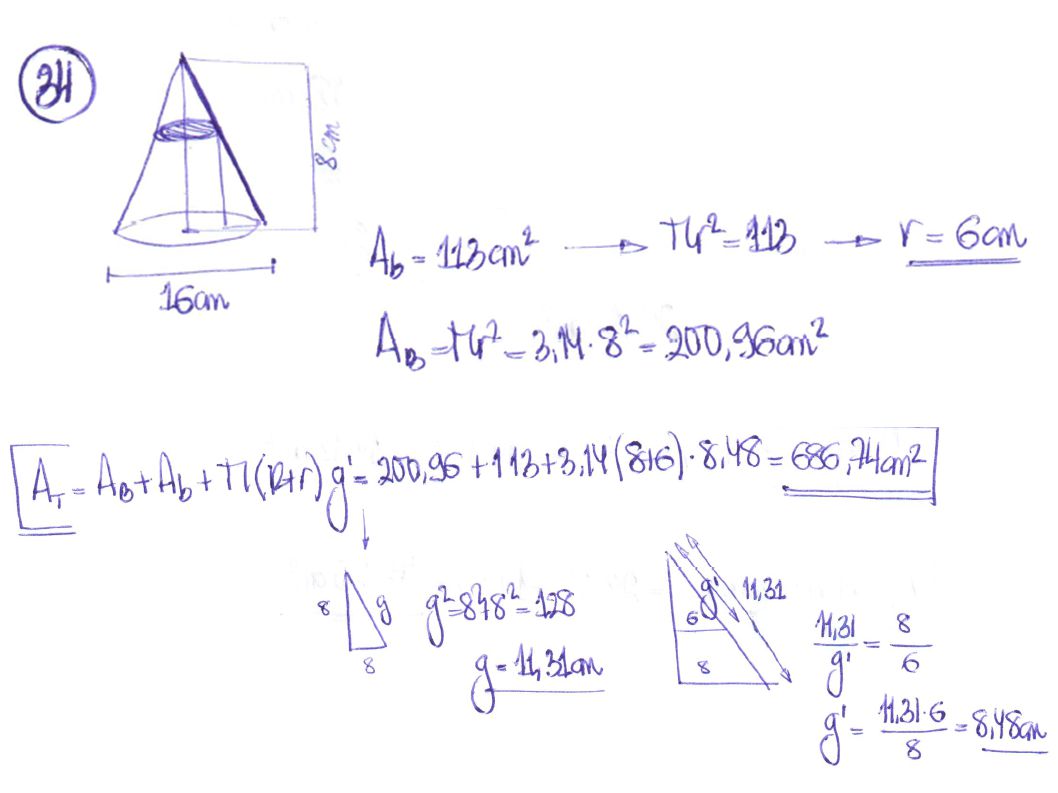 34
8cm
16cm
A_b = 113cm² → πr² = 113 → r = 6cm
A_B = πr² = 3,14·8² = 200,96cm²
A_T = A_B + A_b + π(R+r)g' = 200,96 + 113 + 3,14(8+6)·8,48 = 686,74cm²
8 g 8
g² = 8²+8² = 128
g = 11,31cm
g' 11,31
6
8
11,31/g' = 8/6
g' = 11,31·6/8 = 8,48cm